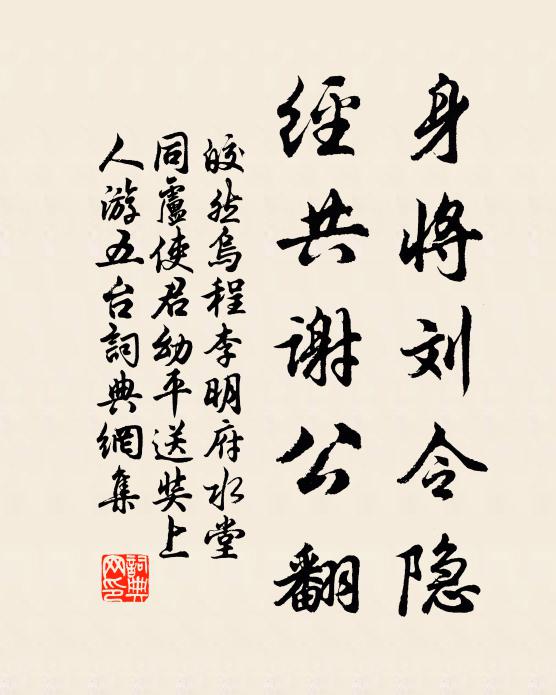 身将刘令隐
經共谢公翻
皎然烏程李明府水堂
同盧使君幼平送奘上
人游五台詞典網集
詞典
网印